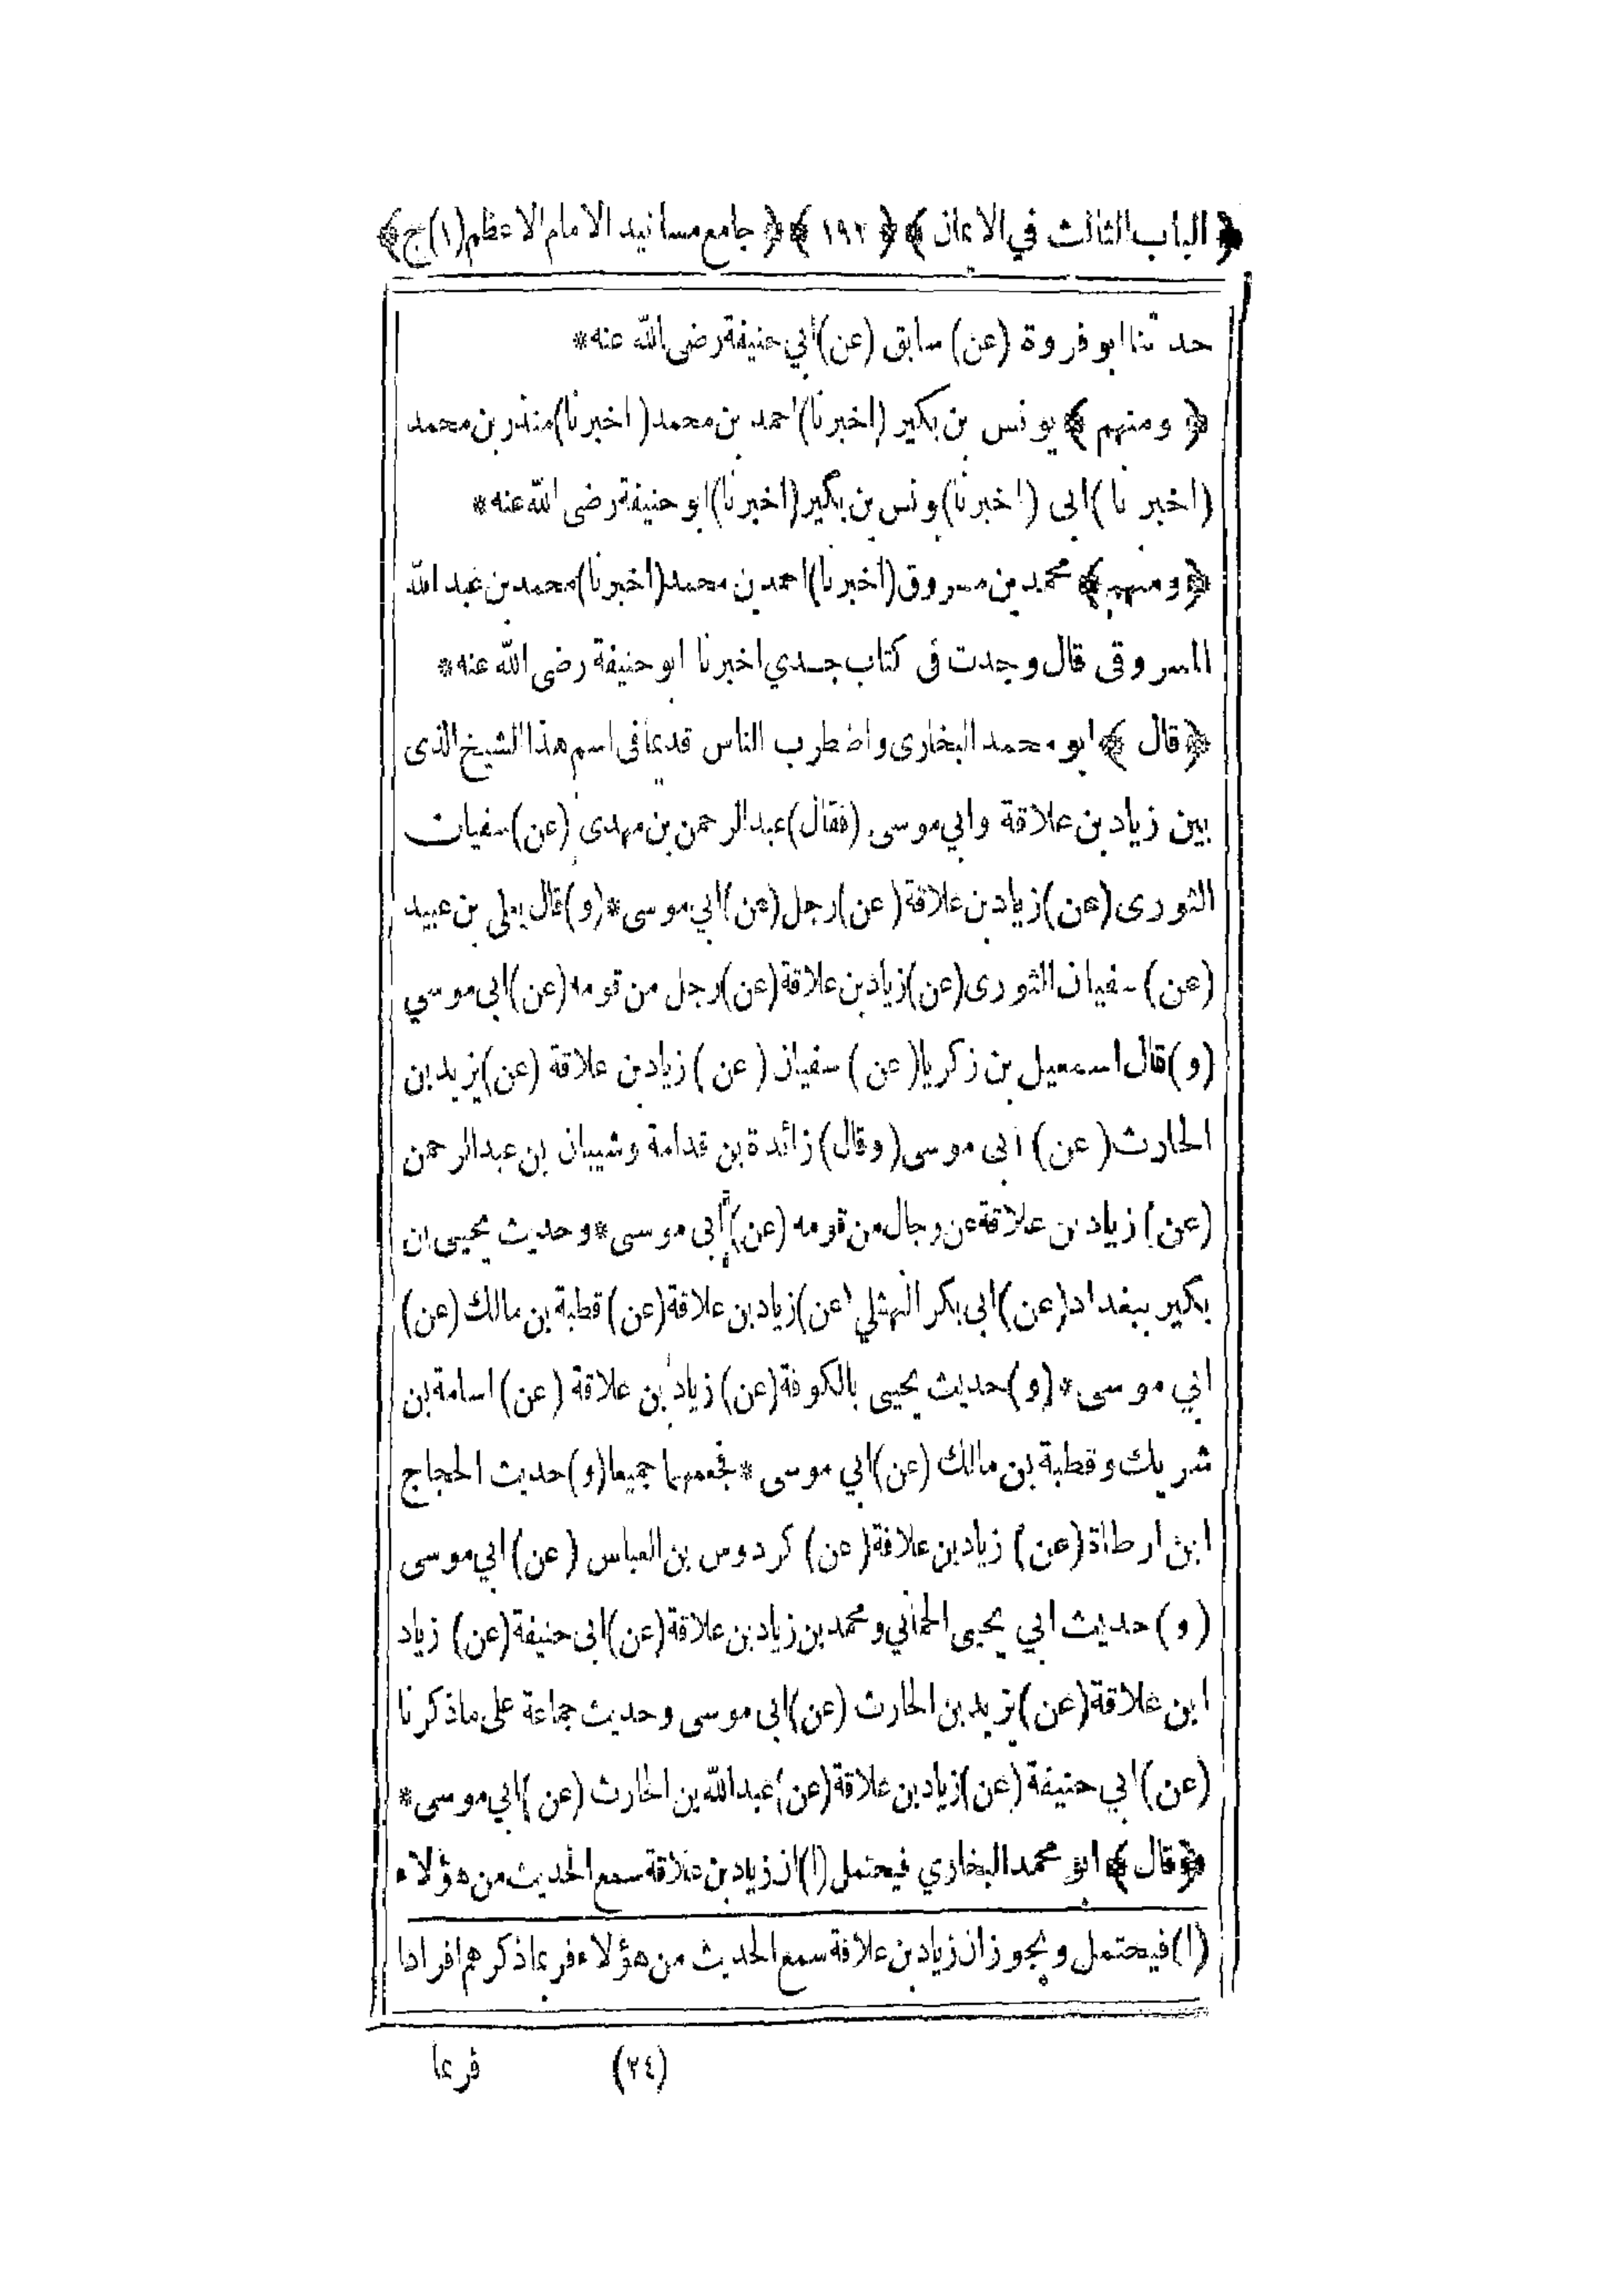 ﴿ الباب الثالث في الايمان ﴾ ﴿ ١٩٣ ﴾ ﴿ جامع مسانيد الامام الاعظم (١) ج ﴾
حدثنا ابو فروة (عن) سابق (عن) أبي حنيفة رضى الله عنه *
﴿ ومنهم ﴾ يونس بن بكير (اخبرنا) احمد بن محمد (اخبرنا) منذر بن محمد
(اخبرنا) ابى (اخبرنا) يونس بن بكير (اخبرنا) ابو حنيفة رضى الله عنه *
﴿ ومنهم ﴾ محمد بن مسروق (اخبرنا) احمد بن محمد (اخبرنا) محمد بن عبد الله
المسروقى قال وجدت فى كتاب جدي اخبرنا ابو حنيفة رضى الله عنه *
﴿ قال ﴾ ابو محمد البخارى واضطرب الناس قديما فى اسم هذا الشيخ الذى
بين زياد بن علاقة وابي موسى (فقال) عبد الرحمن بن مهدى (عن) سفيان
الثورى (عن) زياد بن علاقة (عن) رجل (عن) ابي موسى * (و) قال يعلى بن عبيد
(عن) سفيان الثورى (عن) زياد بن علاقة (عن) رجل من قومه (عن) ابى موسي
(و) قال اسمعيل بن زكريا (عن) سفيان (عن) زياد بن علاقة (عن) يزيد بن
الحارث (عن) أبى موسى (وقال) زائدة بن قدامة وشيبان بن عبد الرحمن
(عن) زياد بن علاقة عن رجال من قومه (عن) أبى موسى * وحديث يحيى بن
بكير ببغداد (عن) ابى بكر النهشلي (عن) زياد بن علاقة (عن) قطبة بن مالك (عن)
ابي موسى * (و) حديث يحيى بالكوفة (عن) زياد بن علاقة (عن) اسامة بن
شريك وقطبة بن مالك (عن) ابي موسى * فجمعهما جميعا (و) حديث الحجاج
ابن ارطاة (عن) زياد بن علاقة (عن) كردوس بن العباس (عن) ابي موسى
(و) حديث ابي يحيى الحماني ومحمد بن زياد بن علاقة (عن) ابى حنيفة (عن) زياد
ابن علاقة (عن) يزيد بن الحارث (عن) ابى موسى وحديث جماعة على ماذكرنا
(عن) ابي حنيفة (عن) زياد بن علاقة (عن) عبد الله بن الحارث (عن) ابي موسى *
﴿ قال ﴾ ابو محمد البخاري فيحتمل (١) ان زياد بن علاقة سمع الحديث من هؤلاء
(١) فيحتمل ويجوز ان زياد بن علاقة سمع الحديث من هؤلاء فربما ذكرهم افرادا
(٢٤) فربما